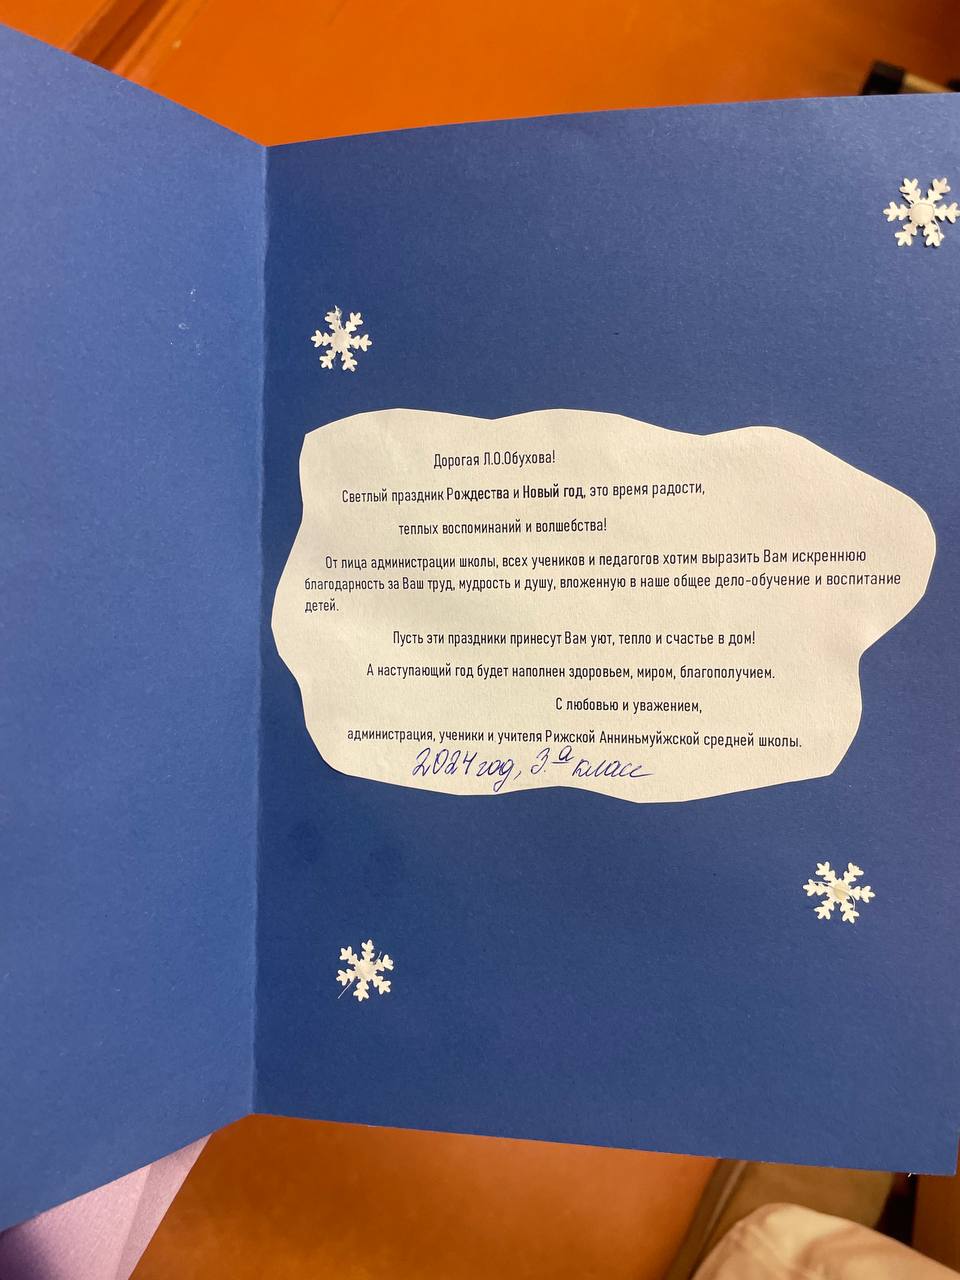 Дорогая Л.О.Обухова!
Светлый праздник Рождества и Новый год, это время радости,
теплых воспоминаний и волшебства!
От лица администрации школы, всех учеников и педагогов хотим выразить Вам искреннюю
благодарность за Ваш труд, мудрость и душу, вложенную в наше общее дело-обучение и воспитание
детей.
Пусть эти праздники принесут Вам уют, тепло и счастье в дом!
А наступающий год будет наполнен здоровьем, миром, благополучием.
С любовью и уважением,
администрация, ученики и учителя Рижской Анниньмуйжской средней школы.
2024 год, 3.а класс